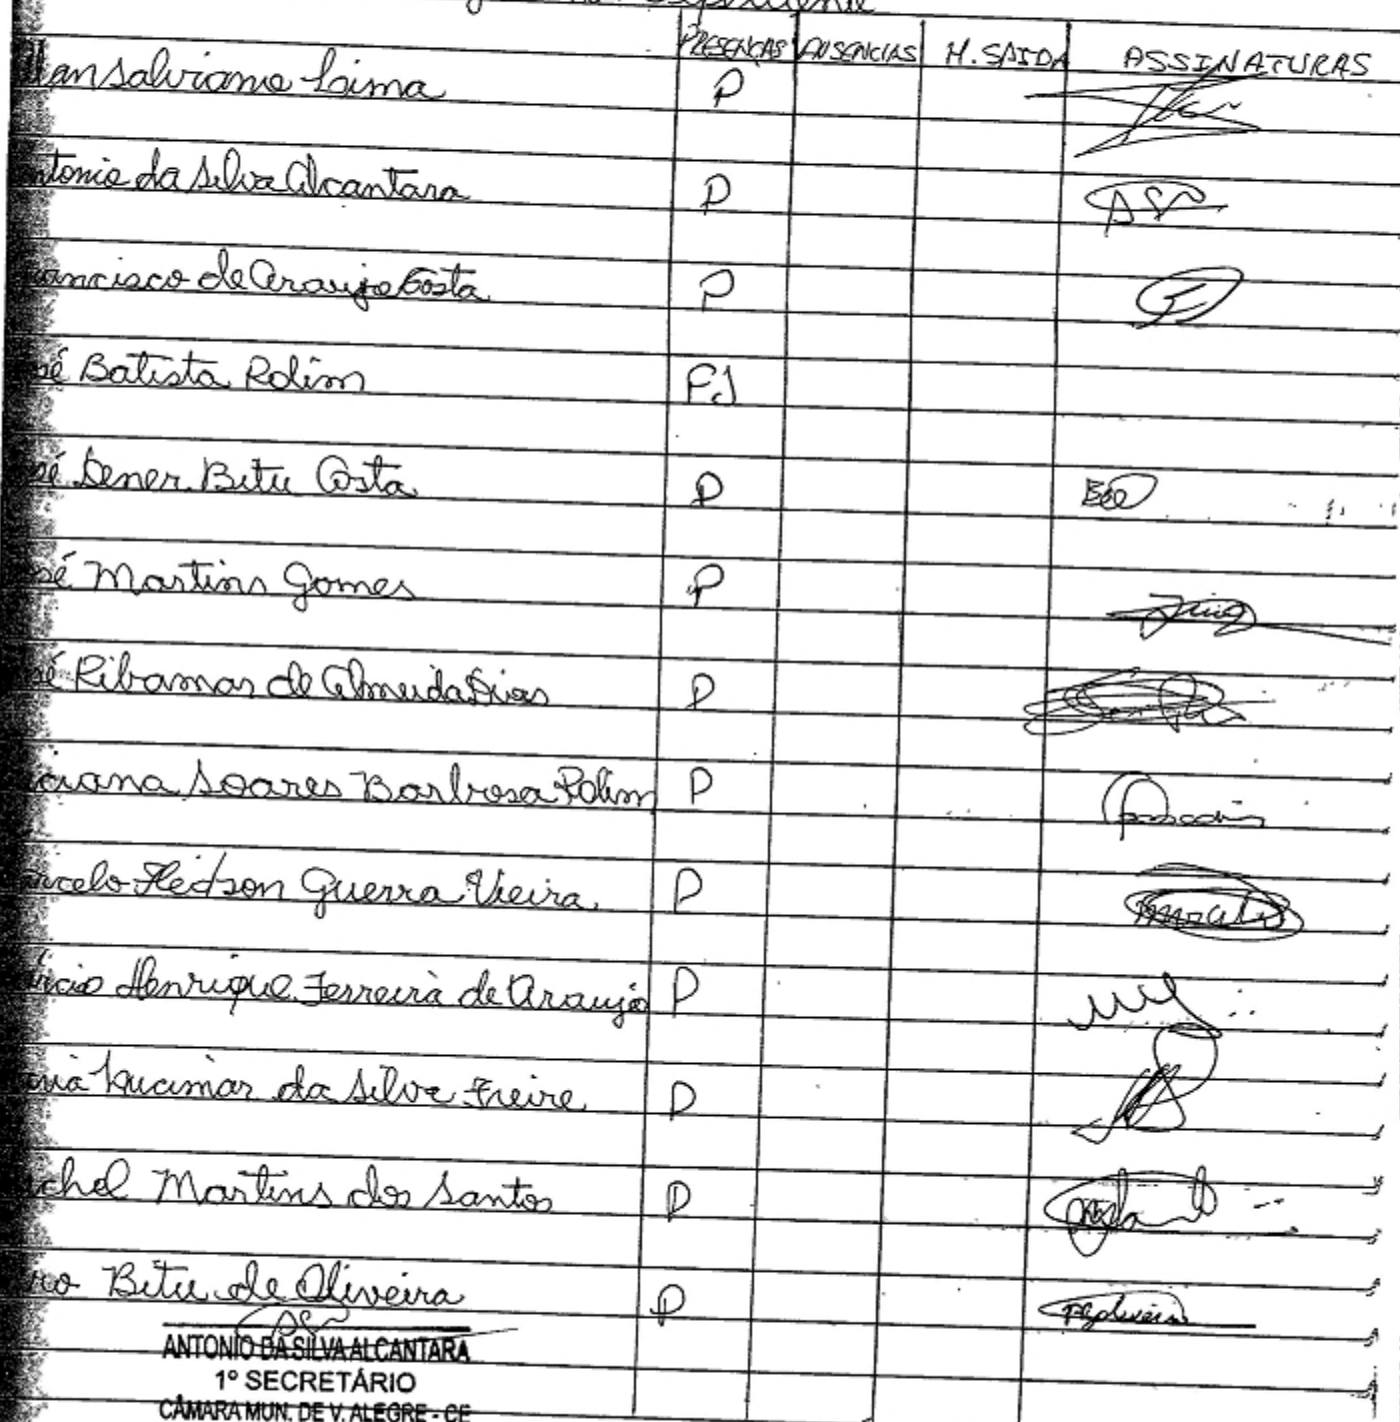 PRESENÇAS AUSENCIAS H. SAIDA ASSINATURAS
llan Salviano Lima P
ntonio da Silva Alcantara P
rancisco de Araujo Costa P
sé Batista Rolim FJ
sé Dener Bitu Costa P
sé Martins Gomes P
sé Ribamar de Almeida Dias P
ciana Soares Barbosa Rolim P
arcelo Fledson Guerra Vieira P
árcio Henrique Ferreira de Araujo P
aria Lucimar da Silva Freire P
ichel Martins dos Santos P
ro Bitu de Oliveira P
ANTONIO DA SILVA ALCANTARA
1º SECRETÁRIO
CÂMARA MUN. DE V. ALEGRE - CE